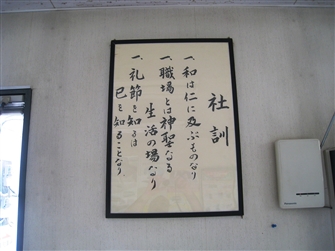 社訓
一、和は仁に及ぶものなり
一、職場とは神聖なる
生活の場なり
一、礼節を知るは
己を知ることなり